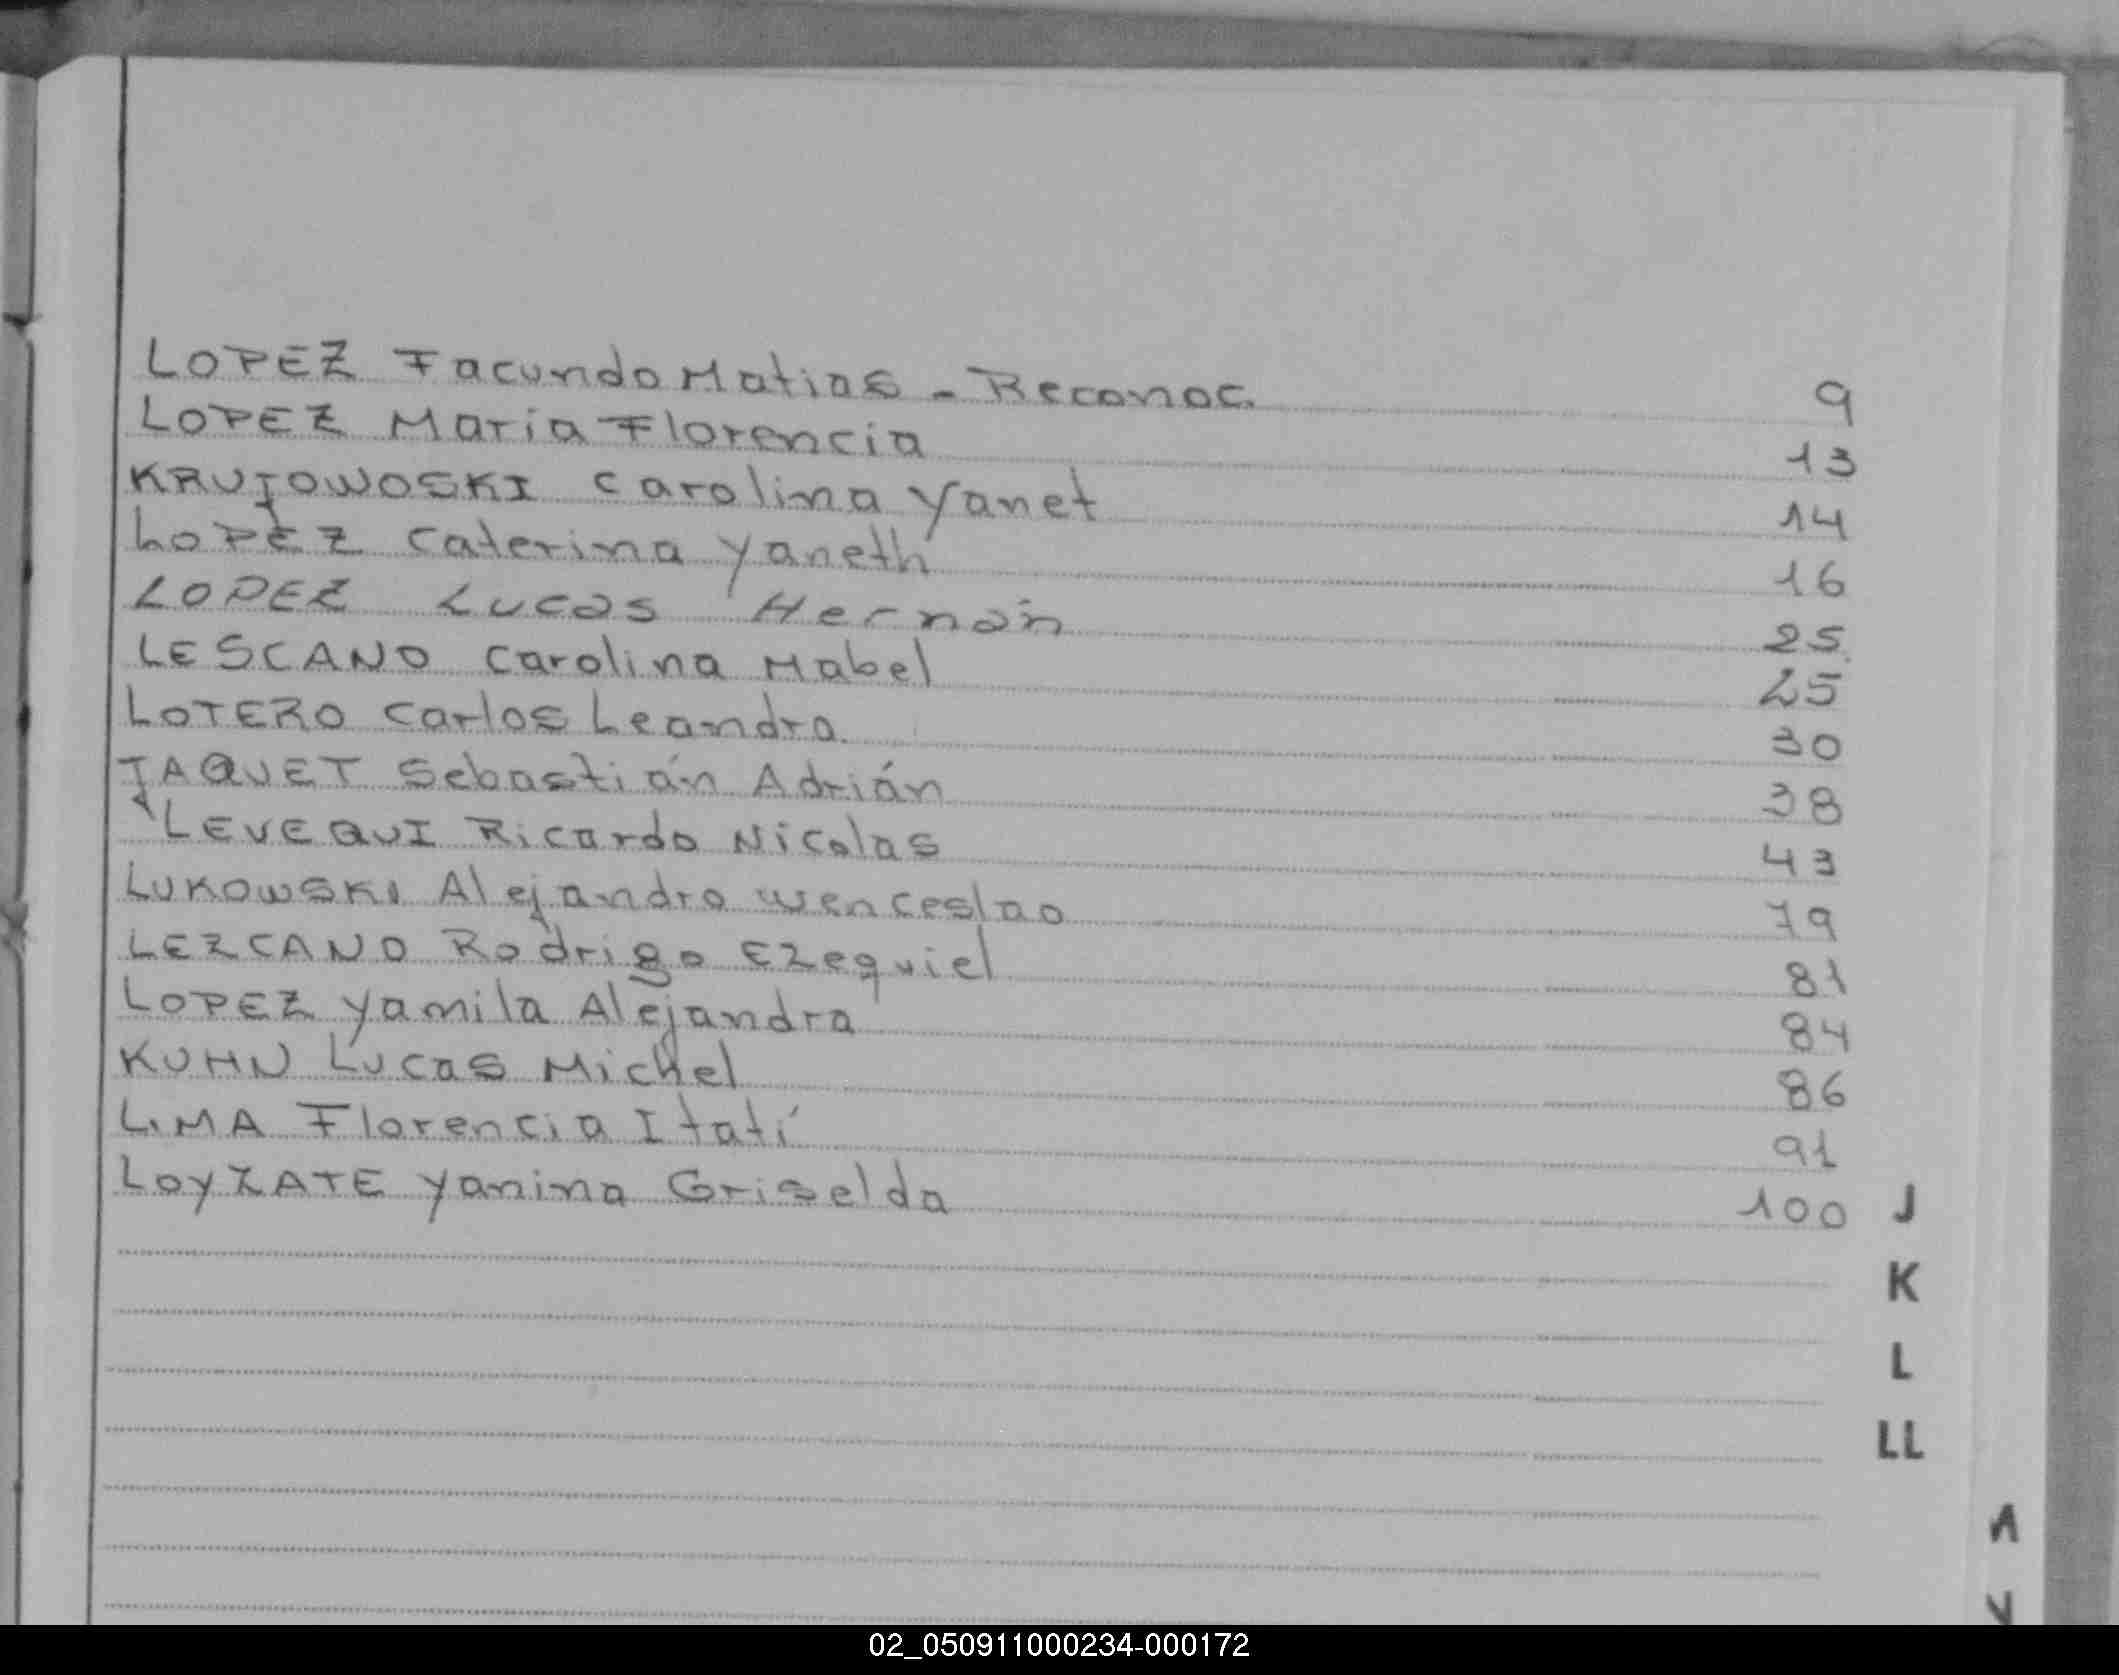 LOPEZ Facundo Matias - Reconoc. 9
LOPEZ María Florencia 13
KRUJOWOSKI Carolina Yanet 14
LOPEZ Caterina Yaneth 16
LOPEZ Lucas Hernán 25
LESCANO Carolina Mabel 25
LOTERO Carlos Leandro 30
JAQUET Sebastián Adrián 38
LEVEQUI Ricardo Nicolas 43
LUKOWSKI Alejandro Wenceslao 79
LEZCANO Rodrigo Ezequiel 81
LOPEZ Yamila Alejandra 84
KUHN Lucas Michel 86
LIMA Florencia Itatí 91
LOYZATE Yanina Griselda 100
J
K
L
LL
02_050911000234-000172